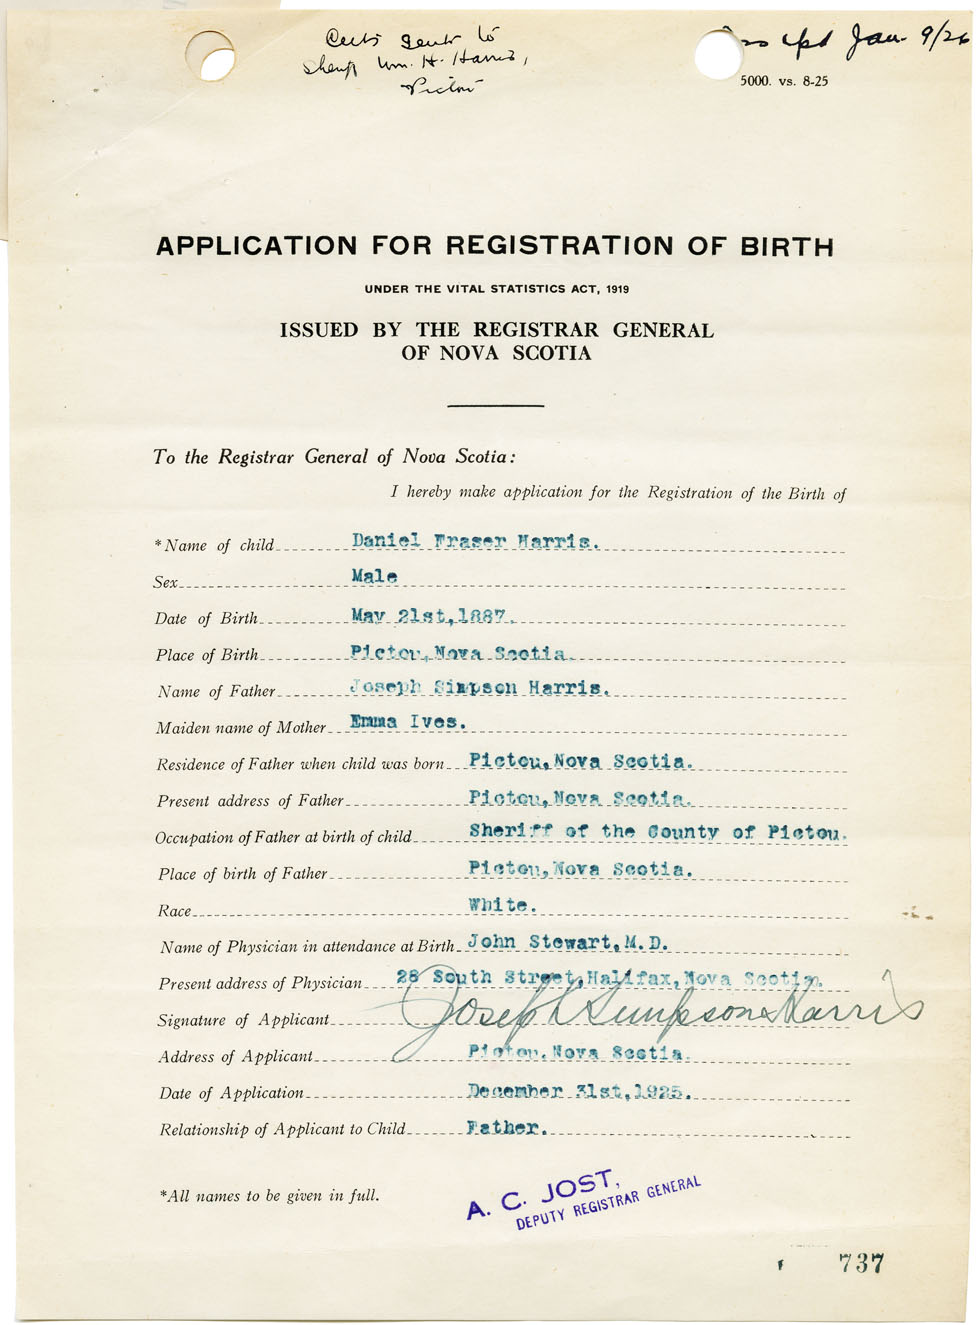 Certs sent to
Sheriff Wm. H. Harris,
Pictou
Jan. 9/26
5000. vs. 8-25
APPLICATION FOR REGISTRATION OF BIRTH
UNDER THE VITAL STATISTICS ACT, 1919
ISSUED BY THE REGISTRAR GENERAL
OF NOVA SCOTIA
To the Registrar General of Nova Scotia:
I hereby make application for the Registration of the Birth of
*Name of child Daniel Fraser Harris.
Sex Male
Date of Birth May 21st,1887.
Place of Birth Pictou,Nova Scotia.
Name of Father Joseph Simpson Harris.
Maiden name of Mother Emma Ives.
Residence of Father when child was born Pictou,Nova Scotia.
Present address of Father Pictou,Nova Scotia.
Occupation of Father at birth of child Sheriff of the County of Pictou.
Place of birth of Father Pictou,Nova Scotia.
Race White.
Name of Physician in attendance at Birth John Stewart,M.D.
Present address of Physician 28 South Street,Halifax,Nova Scotia.
Signature of Applicant Joseph Simpson Harris
Address of Applicant Pictou,Nova Scotia.
Date of Application December 31st,1925.
Relationship of Applicant to Child Father.
*All names to be given in full.
A. C. JOST,
DEPUTY REGISTRAR GENERAL
737